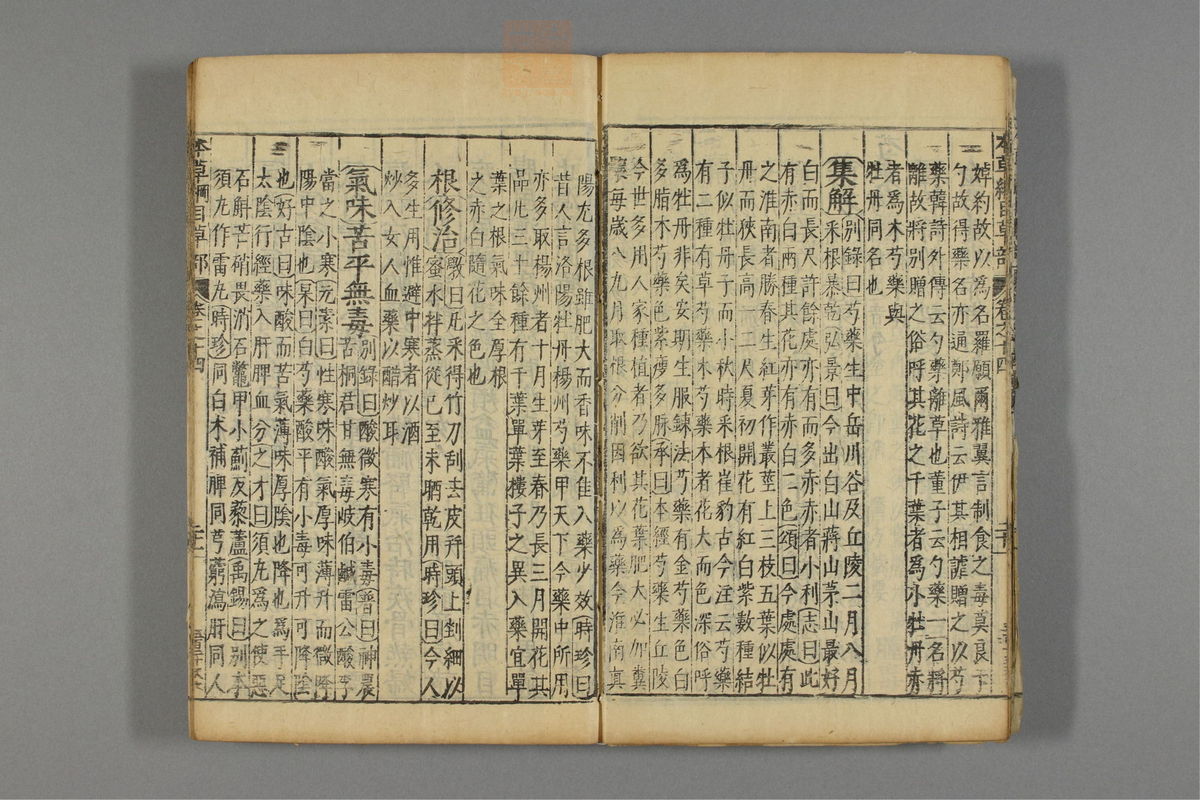 本草綱目草部 卷之十四
婥約故以爲名羅願爾雅翼言制食之毒莫良于
勺故得藥名亦通鄭風詩云伊其相謔贈之以芍
藥韓詩外傳云勺藥離草也董子云勺藥一名將
離故將別贈之俗呼其花之千葉者爲小牡丹赤
者爲木芍藥與
牡丹同名也
集解別錄曰芍藥生中岳川谷及丘陵二月八月
采根暴乾弘景曰今出白山蔣山茅山最好
白而長尺許餘處亦有而多赤赤者小利志曰此
有赤白兩種其花亦有赤白二色頌曰今處處有
之淮南者勝春生紅芽作叢莖上三枝五葉似牡
丹而狹長高一二尺夏初開花有紅白紫數種結
子似牡丹子而小秋時采根崔豹古今注云芍藥
有二種有草芍藥木芍藥木者花大而色深俗呼
爲牡丹非矣安期生服鍊法芍藥有金芍藥色白
多脂木芍藥色紫瘦多脉承曰本經芍藥生丘陵
今世多用人家種植者乃欲其花葉肥大必加糞
壤每歲八九月取根分削因利以爲藥今淮南真
陽尤多根雖肥大而香味不佳入藥少效時珍曰
昔人言洛陽牡丹楊州芍藥甲天下今藥中所用
亦多取楊州者十月生芽至春乃長三月開花其
品凡三十餘種有千葉單葉樓子之異入藥宜單
葉之根氣味全厚根
之赤白隨花之色也
根修治斅曰凡采得竹刀刮去皮幷頭上剉細以
蜜水拌蒸從巳至未晒乾用時珍曰今人
多生用惟避中寒者以酒
炒入女人血藥以醋炒耳
氣味苦平無毒別錄曰酸微寒有小毒普曰神農
苦桐君甘無毒岐伯鹹雷公酸李
當之小寒元素曰性寒味酸氣厚味薄升而微降
陽中陰也杲曰白芍藥酸平有小毒可升可降陰
也好古曰味酸而苦氣薄味厚陰也降也爲手足
太陰行經藥入肝脾血分之才曰須丸爲之使惡
石斛芒硝畏消石鼈甲小薊反藜蘆禹錫曰別本
須丸作雷丸時珍同白朮補脾同芎藭瀉肝同人
本草綱目草部 卷十四